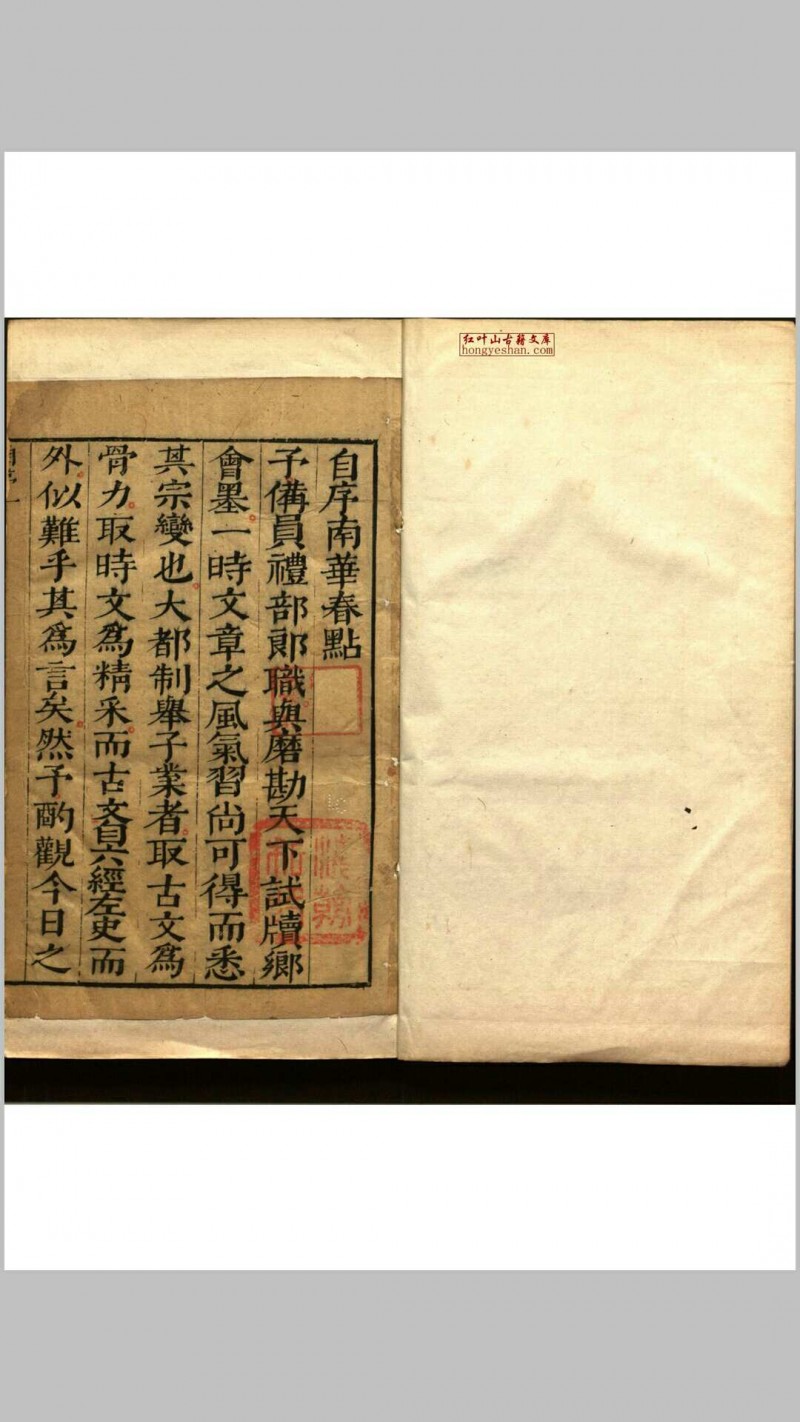 红叶山古籍文库
hongyeshan.com
自序南華春點
予備員禮部郎職與磨勘天下試牘鄉
會墨一時文章之風氣習尚可得而悉
其宗變也大都制舉子業者取古文爲
骨力取時文爲精采而古文自六經左史而
外似難乎其爲言矣然予酌觀今日之